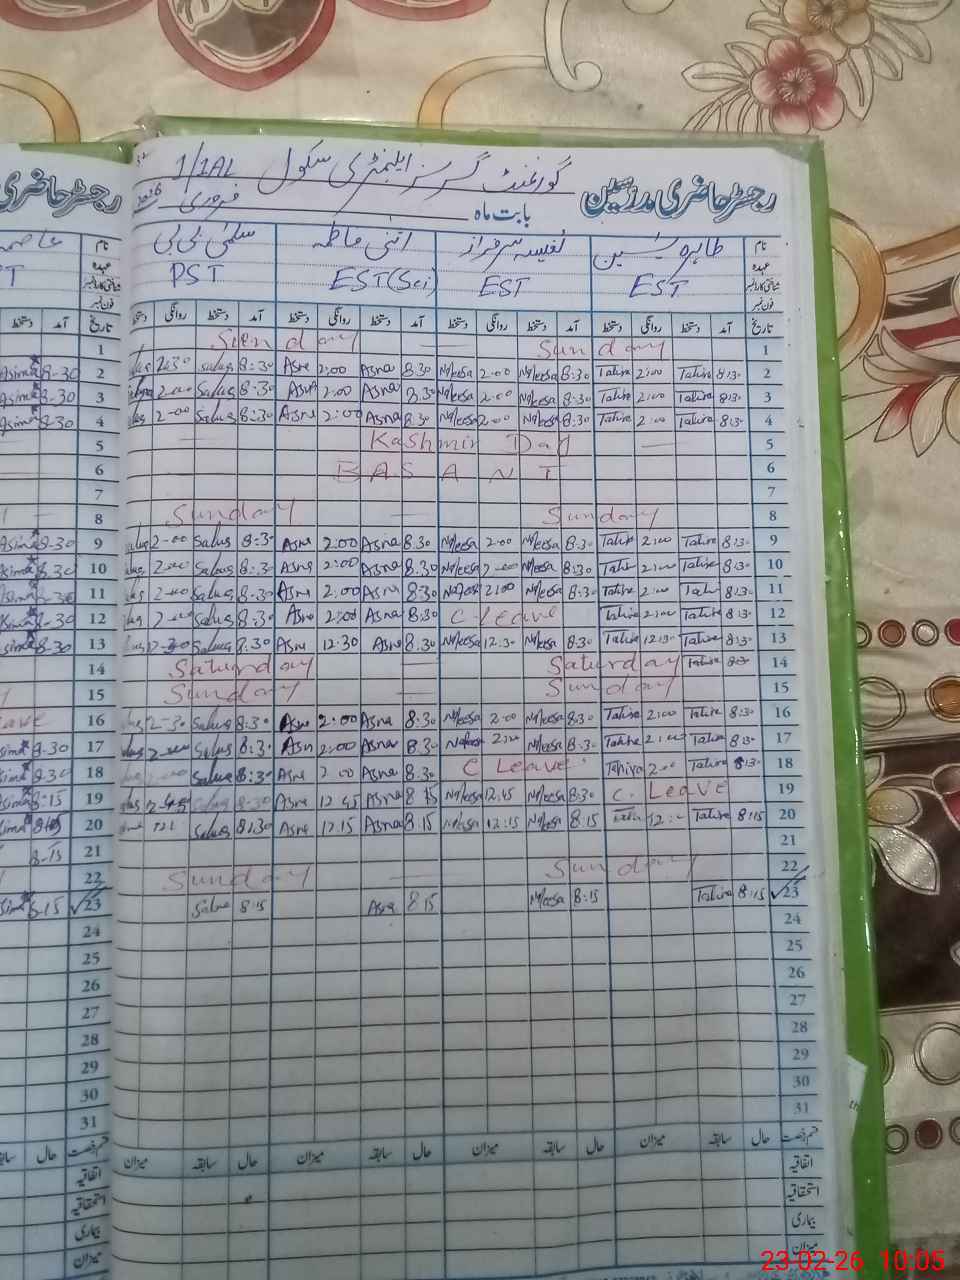 گورنمنٹ گرلز ایلیمنٹری سکول 1/1AL
رجسٹر حاضری مدرسین بابت ماہ فروری 2026
نام طاہرہ یٰسین نفیسہ سرفراز فاطمہ سلمیٰ بی بی
عہدہ EST EST EST (Sci) PST
فون نمبر
تاریخ آمد دستخط روانگی دستخط آمد دستخط روانگی دستخط آمد دستخط روانگی دستخط آمد دستخط روانگی دستخط
1 Sunday Sunday 1
Asima 8-30 2 2:30 Salus 8:30 Asna 2:00 Asna 8.30 Nafeesa 2:00 Nafeesa 8:30 Tahira 2:00 Tahira 8:30 2
Asima 8-30 3 2:00 Salus 8:30 Asna 2:00 Asna 8.30 Nafeesa 2:00 Nafeesa 8:30 Tahira 2:00 Tahira 8:30 3
Asima 8-30 4 2-00 Salus 8:30 Asna 2:00 Asna 8.30 Nafeesa 2:00 Nafeesa 8:30 Tahira 2:00 Tahira 8:30 4
5 Kashmir Day 5
6 BASANT 6
7 7
8 Sunday Sunday 8
Asima 8-30 9 2-00 Salus 8:30 Asna 2:00 Asna 8.30 Nafeesa 2:00 Nafeesa 8:30 Tahira 2:00 Tahira 8:30 9
Asima 8.30 10 2:00 Salus 8:30 Asna 2:00 Asna 8.30 Nafeesa 2:00 Nafeesa 8:30 Tahira 2:00 Tahira 8:30 10
Asima 8-30 11 2-00 Salus 8:30 Asna 2:00 Asna 8:30 Nafeesa 2:00 Nafeesa 8:30 Tahira 2:00 Tahira 8:30 11
Asima 8-30 12 2-00 Salus 8:30 Asna 2:00 Asna 8:30 C Leave Tahira 2:00 Tahira 8:30 12
Asima 8-30 13 Salus 8.30 Asna 12:30 Asna 8.30 Nafeesa 12:30 Nafeesa 8:30 Tahira 12:30 Tahira 8:30 13
14 Saturday Saturday Tahira 8:30 14
15 Sunday Sunday 15
16 2-30 Salus 8:30 Asna 2:00 Asna 8:30 Nafeesa 2:00 Nafeesa 8:30 Tahira 2:00 Tahira 8:30 16
Asima 8-30 17 2-00 Salus 8:30 Asna 2:00 Asna 8.30 Nafeesa 2:00 Nafeesa 8:30 Tahira 2:00 Tahira 8:30 17
Asima 8-30 18 Salus 8:30 Asna 2:00 Asna 8.30 C Leave Tahira 2:00 Tahira 8:30 18
Asima 8-15 19 12-45 Salus 8-30 Asna 12.45 Asna 8 15 Nafeesa 12:45 Nafeesa 8:30 C. Leave 19
Asima 8:15 20 Salus 8:30 Asna 12:15 Asna 8:15 Nafeesa 12:15 Nafeesa 8:15 Tahira Tahira 8:15 20
8-15 21 21
22 Sunday Sunday 22
Asima 8-15 23 Salus 8:15 Asna 8 15 Nafeesa 8:15 Tahira 8:15 23
24 24
25 25
26 26
27 27
28 28
29 29
30 30
31 31
قسم رخصت حال سابقہ میزان حال سابقہ میزان حال سابقہ میزان حال سابقہ میزان
اتفاقیہ
استحقاقیہ
بیماری
میزان
23-02-26 10:05